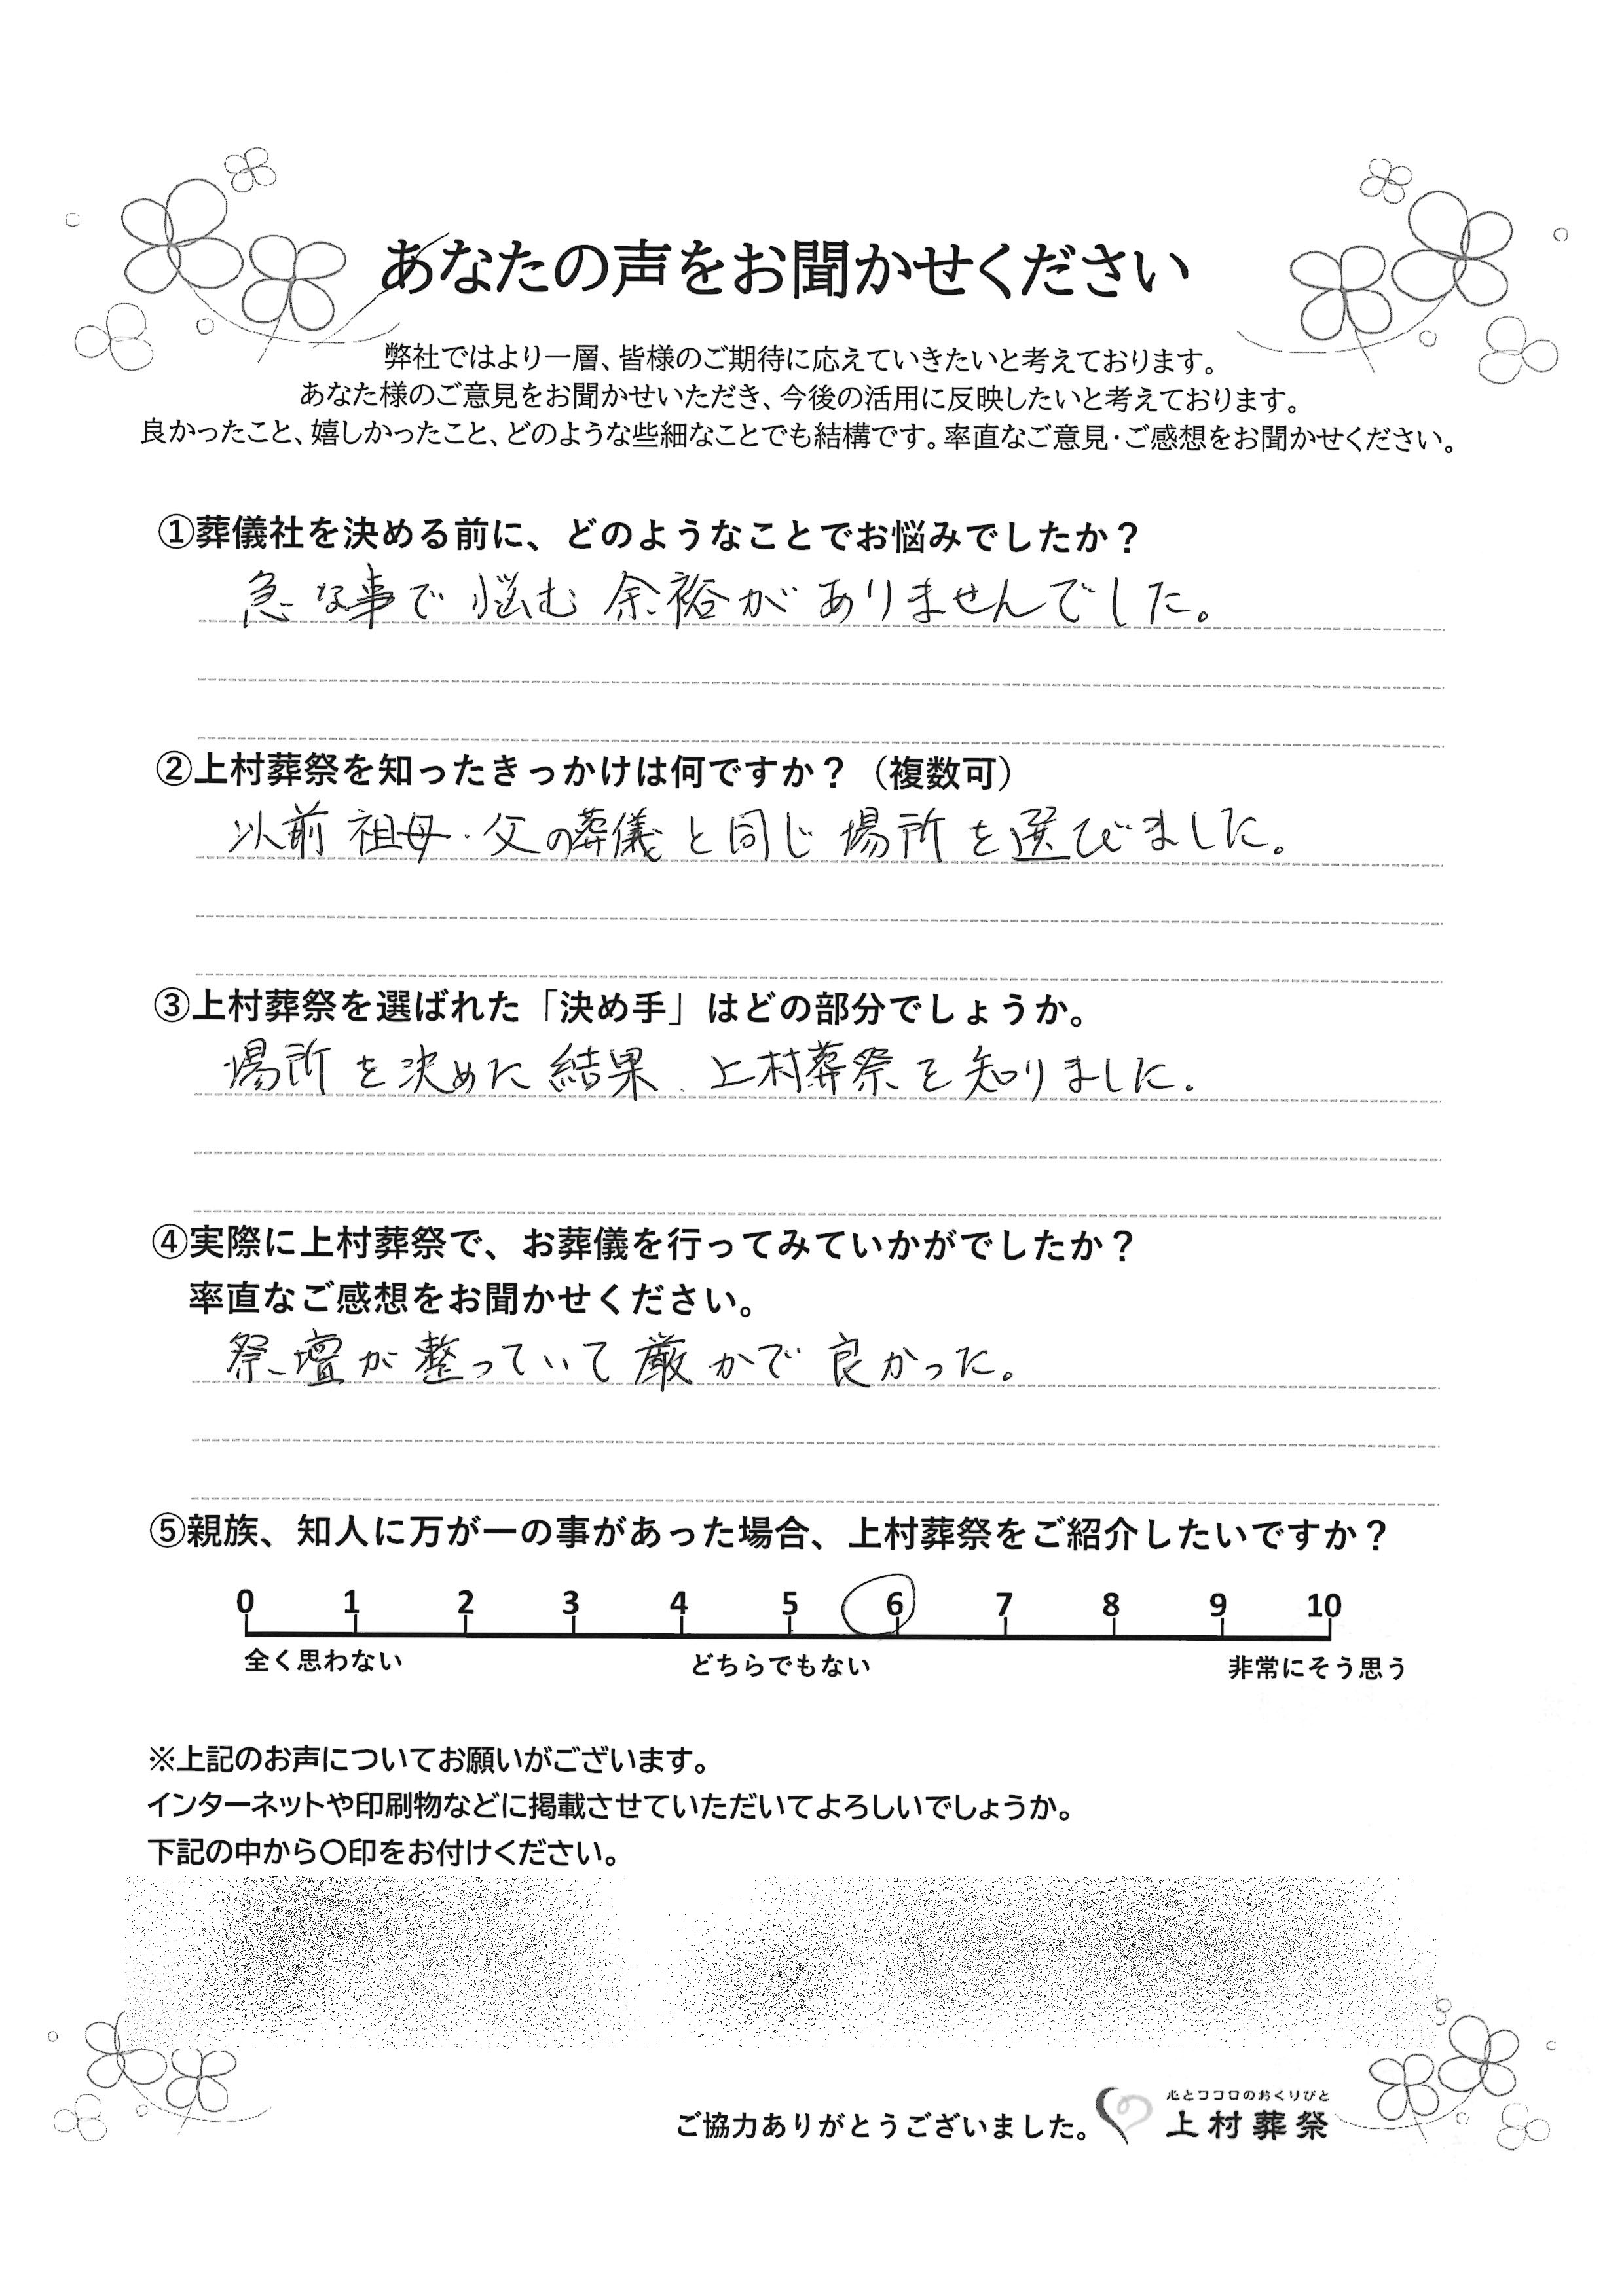 あなたの声をお聞かせください
弊社ではより一層、皆様のご期待に応えていきたいと考えております。
あなた様のご意見をお聞かせいただき、今後の活用に反映したいと考えております。
良かったこと、嬉しかったこと、どのような些細なことでも結構です。率直なご意見・ご感想をお聞かせください。
①葬儀社を決める前に、どのようなことでお悩みでしたか？
急な事で悩む余裕がありませんでした。
②上村葬祭を知ったきっかけは何ですか？（複数可）
以前祖母・父の葬儀と同じ場所を選びました。
③上村葬祭を選ばれた「決め手」はどの部分でしょうか。
場所を決めた結果、上村葬祭を知りました。
④実際に上村葬祭で、お葬儀を行ってみていかがでしたか？
率直なご感想をお聞かせください。
祭壇が整っていて厳かで良かった。
⑤親族、知人に万が一の事があった場合、上村葬祭をご紹介したいですか？
0 1 2 3 4 5 6 7 8 9 10
全く思わない どちらでもない 非常にそう思う
※上記のお声についてお願いがございます。
インターネットや印刷物などに掲載させていただいてよろしいでしょうか。
下記の中から〇印をお付けください。
心とココロのおくりびと
ご協力ありがとうございました。 上村葬祭